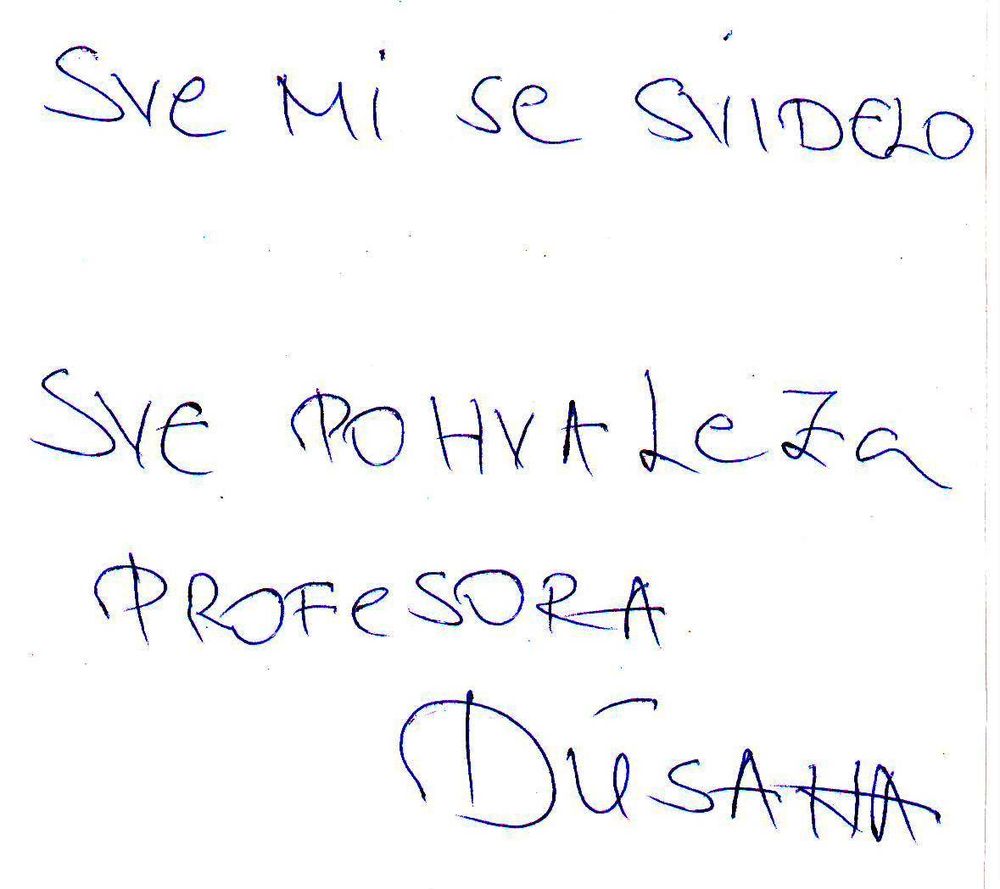 Sve Mi Se SVIDELO
SVE POHVALE Za
PROFeSORA
DŪSANA